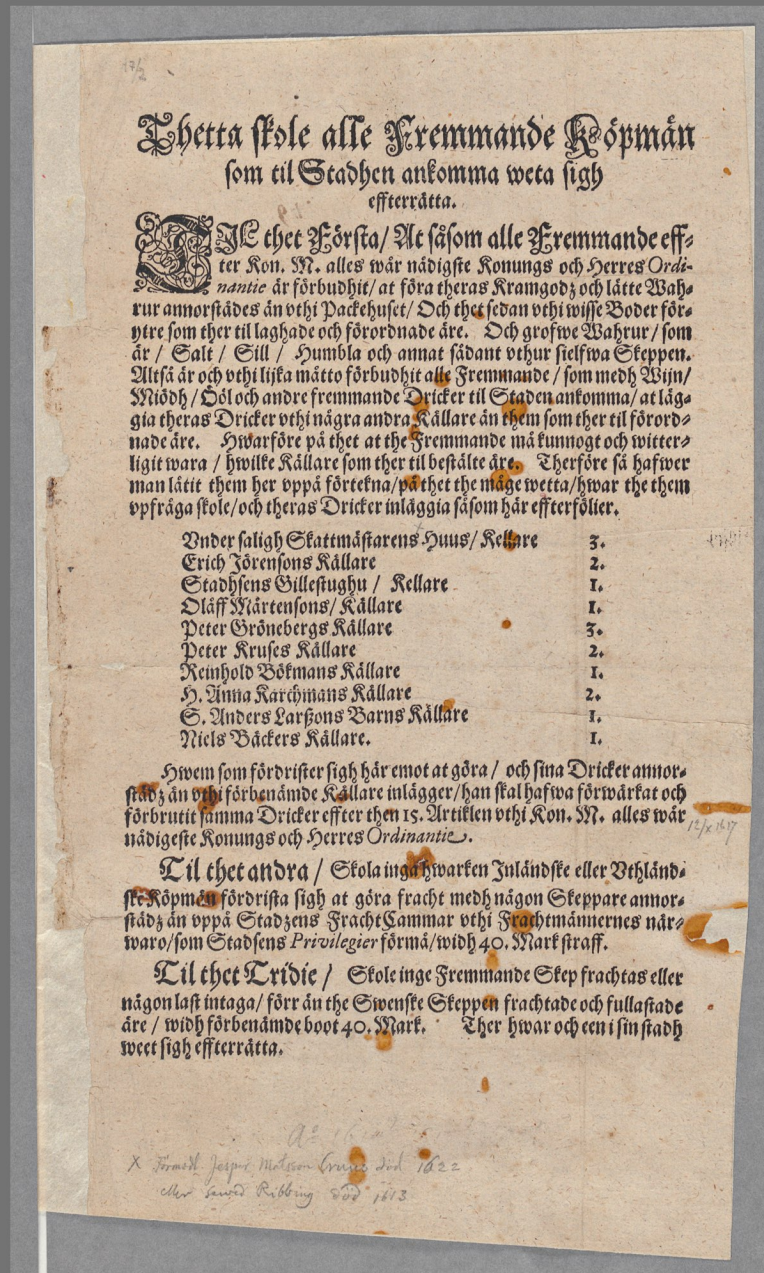 17/2
Thetta skole alle Fremmande Köpmän
som til Stadhen ankomma weta sigh
effterrätta.
TIL thet Första/ At såsom alle Fremmande eff-
ter Kon. M. alles wår nådigste Konungs och Herres Ordi-
nantie är förbudhit/ at föra theras Kramgodz och lätte Wah-
rur annorstädes än vthi Packehuset/ Och thet sedan vthi wisse Boder för-
ytre som ther til laghade och förordnade äre. Och grofwe Wahrur/ som
är / Salt / Sill / Humbla och annat sådant vthur sielfwa Skeppen.
Altså är och vthi lijka måtto förbudhit alle Fremmande / som medh Wijn/
Miödh / Ööl och andre fremmande Dricker til Staden ankomma/ at läg-
gia theras Dricker vthi några andra Källare än them som ther til förord-
nade äre. Hwarföre på thet at the Fremmande må kunnogt och witter-
ligit wara / hwilke Källare som ther til bestälte äre. Therföre så hafwer
man låtit them her vppå förtekna/på thet the måge wetta/hwar the them
vpfråga skole/och theras Dricker inläggia såsom här effterfölier.
Vnder saligh Skattmästarens Huus/ Kellare 3.
Erich Jörensons Källare 2.
Stadhsens Gillestughu / Kellare 1.
Oläff Mårtensons/ Källare 1.
Peter Grönebergs Källare 3.
Peter Kruses Källare 2.
Reinhold Bökmans Källare 1.
H. Anna Karchmans Källare 2.
S. Anders Larßons Barns Källare 1.
Niels Bäckers Källare. 1.
Hwem som fördrister sigh här emot at göra / och sina Dricker annor-
städz än vthi förbenämde Källare inlägger/han skal hafwa förwärkat och
förbrutit samma Dricker effter then 15. Artiklen vthi Kon. M. alles wår
nådigeste Konungs och Herres Ordinantie.
12/x 1617
Til thet andra / Skola inga hwarken Inländske eller Vthländ-
ske Köpmän fördrista sigh at göra fracht medh någon Skeppare annor-
städz än vppå Stadzens FrachtCammar vthi Frachtmännernes när-
waro/som Stadsens Privilegier förmå/widh 40. Mark straff.
Til thet Tridie / Skole inge Fremmande Skep frachtas eller
någon last intaga/ förr än the Swenske Skeppen frachtade och fullastade
äre / widh förbenämde boot 40. Mark. Ther hwar och een i sin stadh
weet sigh effterrätta.
X Förmodl. Jesper Matsson Cruus död 1622
eller Seved Ribbing död 1613